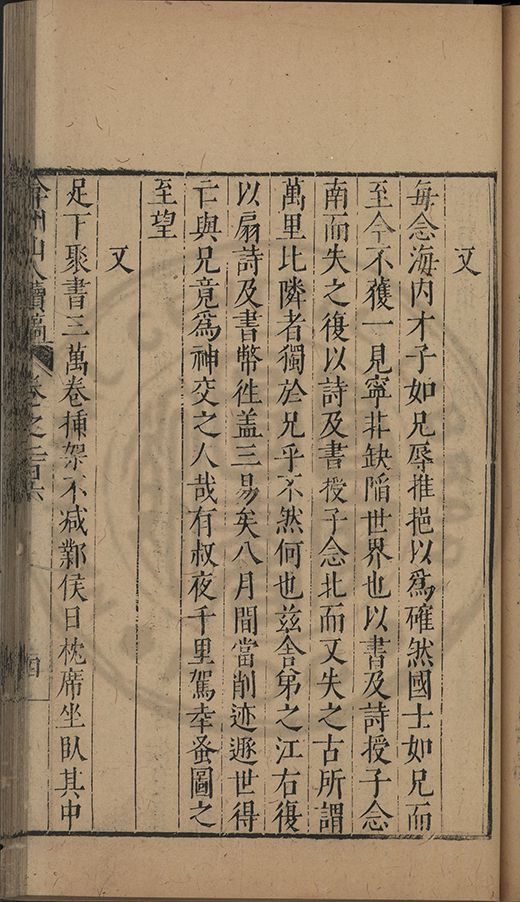 又
每念海内才子如兄辱推挹以爲確然國士如兄而
至今不獲一見寧非缺陷世界也以書及詩授子念
南而失之復以詩及書授子念北而又失之古所謂
萬里比隣者獨於兄乎不然何也兹舍弟之江右復
以扇詩及書幣徃盖三易矣八月間當削迹遯世得
亡與兄竟爲神交之人哉有叔夜千里駕幸蚤圖之
至望
又
足下聚書三萬卷揷架不减鄴侯日枕席坐臥其中
弇州山人續稿 卷之二百六
四